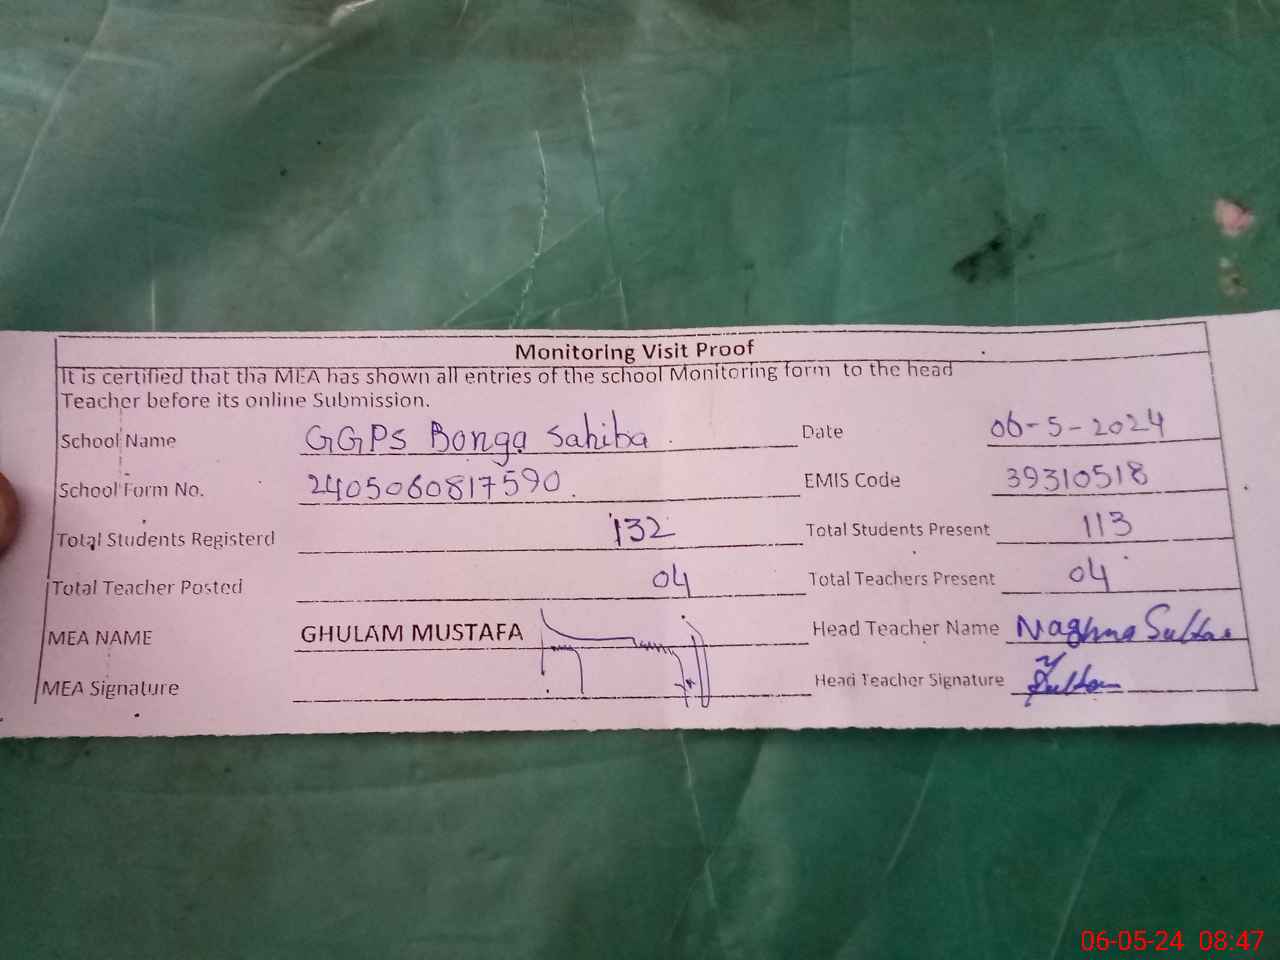 Monitoring Visit Proof
It is certified that tha MEA has shown all entries of the school Monitoring form to the head
Teacher before its online Submission.
School Name GGPS Bonga Sahiba Date 06-5-2024
School Form No. 2405060817590 EMIS Code 39310518
Total Students Registerd 132 Total Students Present 113
Total Teacher Posted 04 Total Teachers Present 04
MEA NAME GHULAM MUSTAFA Head Teacher Name Naghma Sultan
MEA Signature Head Teacher Signature Sultan
06-05-24 08:47